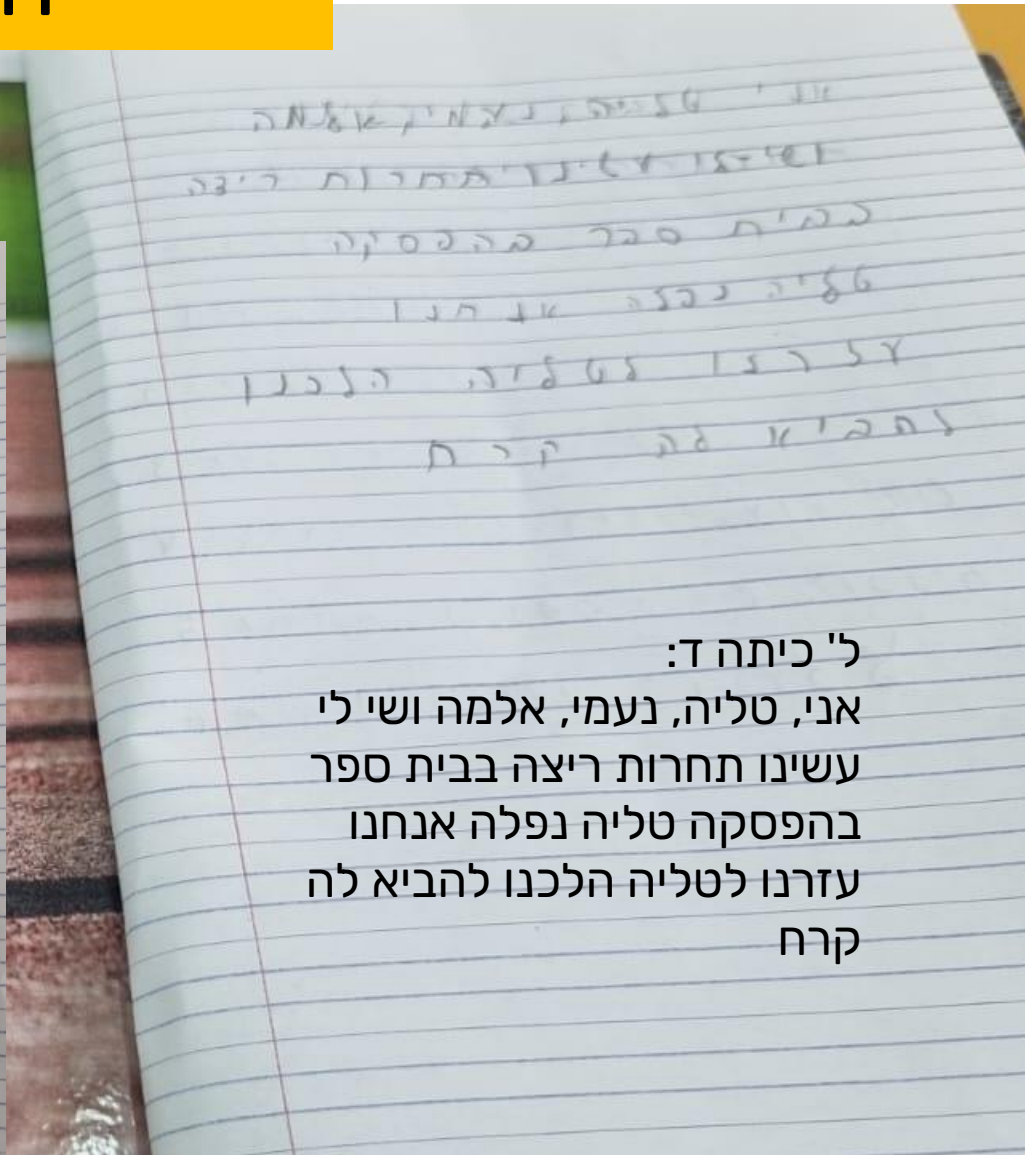 אני טלייה, נעמי, אלמה
ושילי עשינו תחרות ריצה
בבית ספר בהפסקה
טליה נפלה אנחנו
עזרנו לטליה הלכנו
להביא לה קרח
ל' כיתה ד:
אני, טליה, נעמי, אלמה ושי לי
עשינו תחרות ריצה בבית ספר
בהפסקה טליה נפלה אנחנו
עזרנו לטליה הלכנו להביא לה
קרח